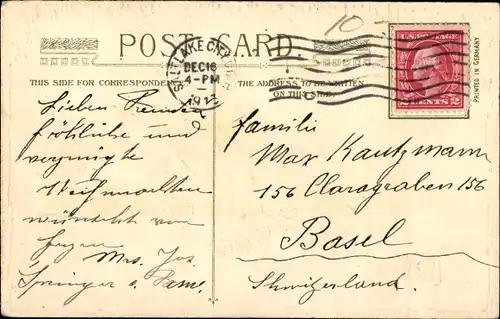 POST CARD.
10
SALT LAKE CITY
DEC 16
4-PM
U.S. POSTAGE
2 CENTS 2
PRINTED IN GERMANY
THIS SIDE FOR CORRESPONDENCE
THE ADDRESS TO BE WRITTEN
ON THIS SIDE
Lieben Freunden
fröhliche und
vergnügte
Weihnachten
wünscht von
Mrs. Jos.
Springer & Fam.
Familie
Max Kautzmann
156 Claragraben 156
Basel
Schwizerland.